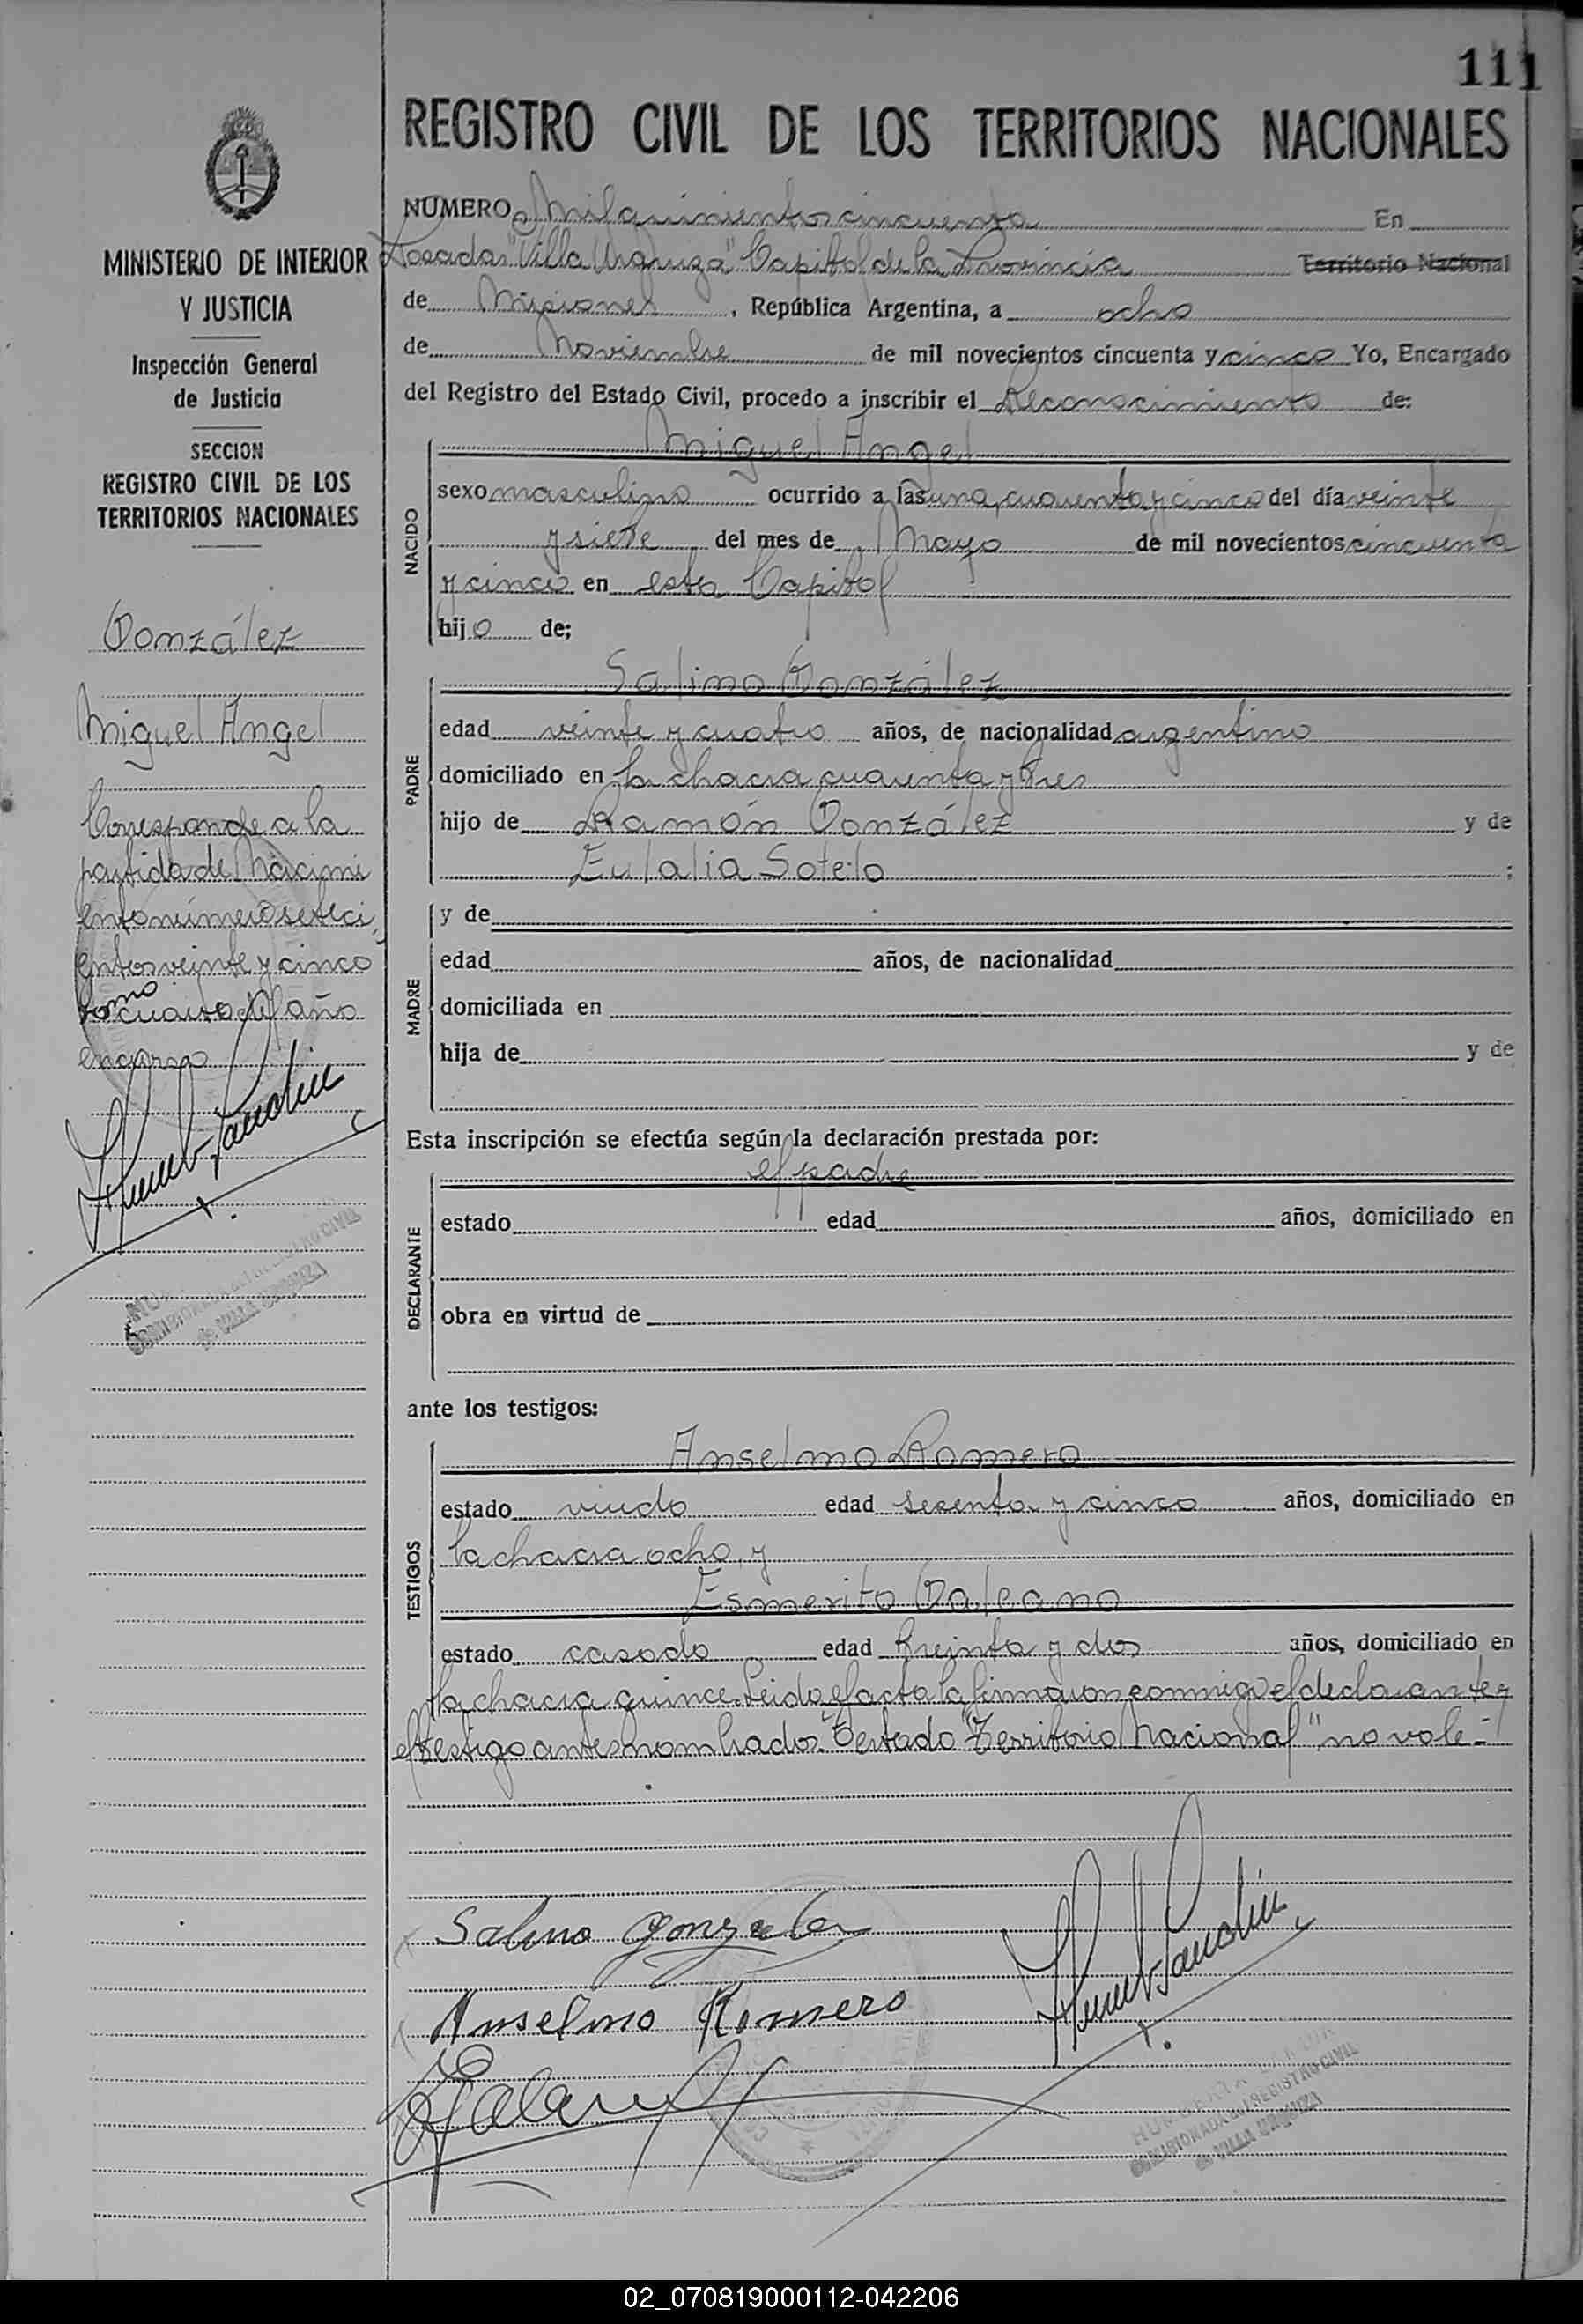 111
REGISTRO CIVIL DE LOS TERRITORIOS NACIONALES
MINISTERIO DE INTERIOR
Y JUSTICIA
Inspección General
de Justicia
SECCION
REGISTRO CIVIL DE LOS
TERRITORIOS NACIONALES
González
Miguel Angel
Corresponde a la
partida de Nacimi
ento número seteci
entos veinte y cinco
tomo
cuarto del año
en curso
NUMERO Mil quinientos cincuenta En
Posadas "Villa Urquiza" Capital de la Provincia Territorio Nacional
de Misiones, República Argentina, a ocho
de Noviembre de mil novecientos cincuenta y cinco Yo, Encargado
del Registro del Estado Civil, procedo a inscribir el Reconocimiento de:
Miguel Angel
NACIDO
sexo masculino ocurrido a las una, cuarenta y cinco del día veinte
y siete del mes de Mayo de mil novecientos cincuenta
y cinco en esta Capital
hijo de;
Salino González
PADRE
edad veinte y cuatro años, de nacionalidad argentino
domiciliado en la chacra cuarenta y tres
hijo de Ramón González y de
Eulalia Sotelo ;
MADRE
y de
edad años, de nacionalidad
domiciliada en
hija de y de
Esta inscripción se efectúa según la declaración prestada por:
el padre
DECLARANTE
estado edad años, domiciliado en
obra en virtud de
ante los testigos:
Anselmo Romero
TESTIGOS
estado viudo edad sesenta y cinco años, domiciliado en
la chacra ocho, y
Esmerito Galeano
estado casado edad treinta y dos años, domiciliado en
la chacra quince. Leida el acta la firmaron conmigo el declarante y
el testigo antes nombrados. Testado "Territorio Nacional" no vale.-
Salino Gonzalez
Anselmo Romero
EGaleano
REGISTRO CIVIL
de VILLA URQUIZA
02_070819000112-042206